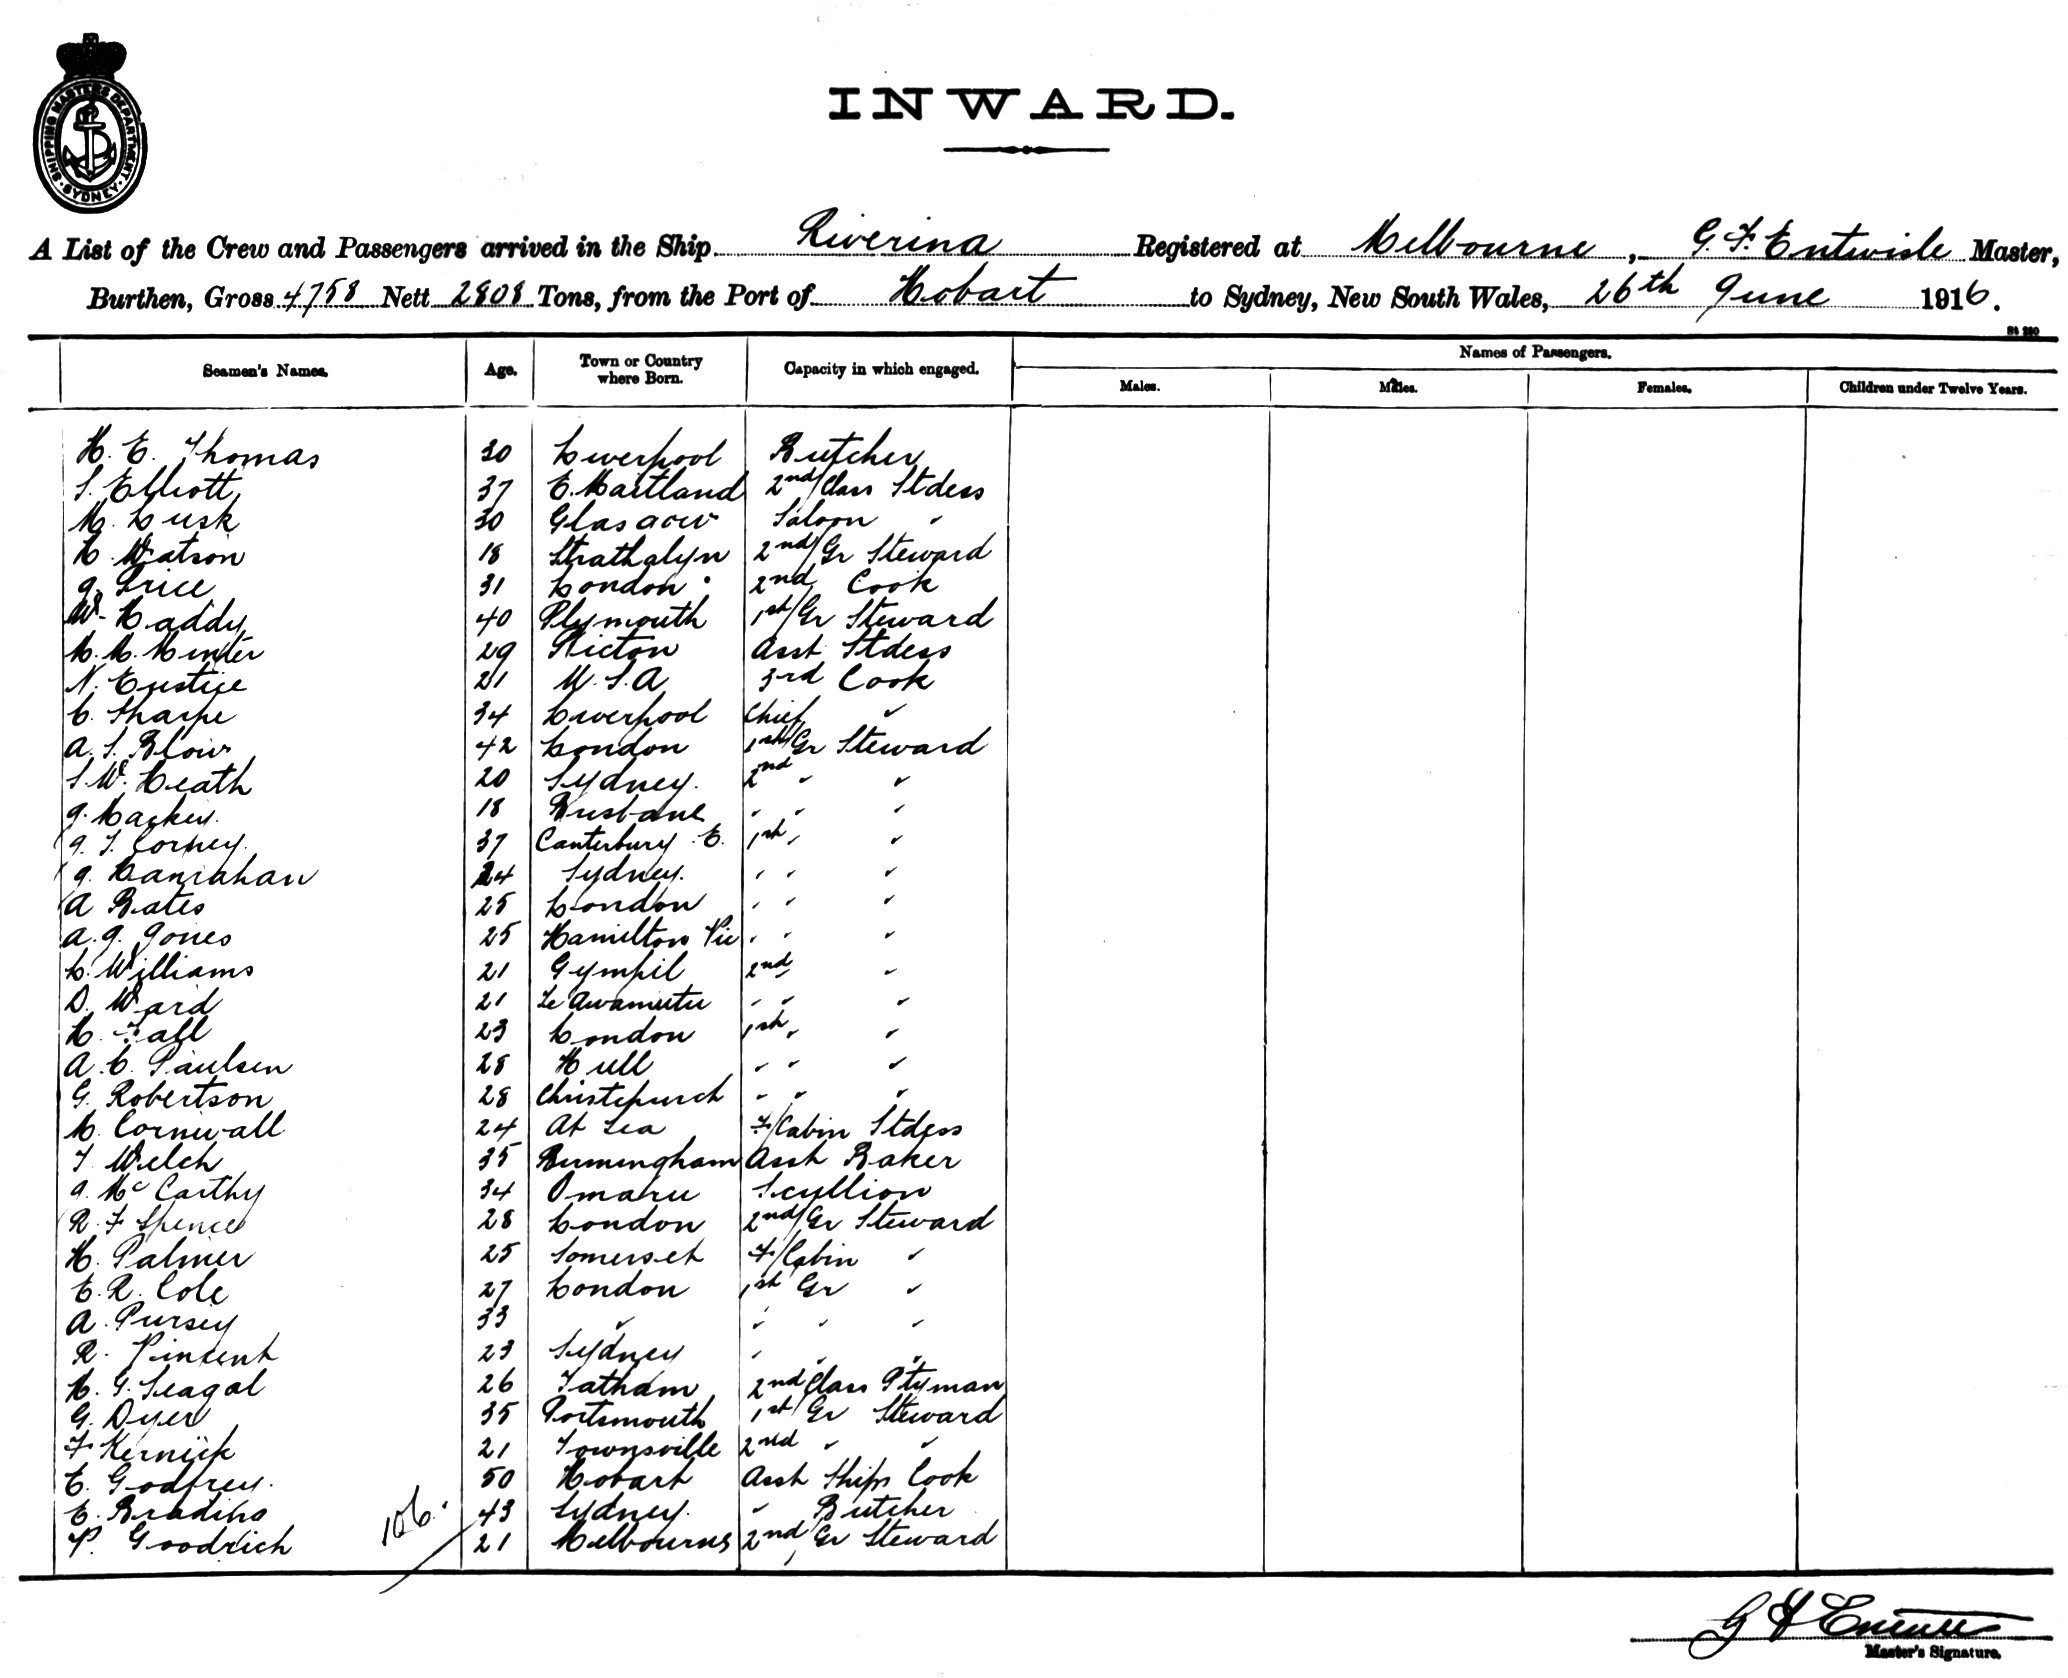 SHIPPING MASTERS DEPARTMENT. SYDNEY.
INWARD.
A List of the Crew and Passengers arrived in the Ship Riverina Registered at Melbourne, G. F. Entwisle Master,
Burthen, Gross 4758 Nett 2808 Tons, from the Port of Hobart to Sydney, New South Wales, 26th June 1916.
Seamen's Names. Age. Town or Country where Born. Capacity in which engaged. Names of Passengers.
Males. Males. Females. Children under Twelve Years.
H. E. Thomas 30 Liverpool Butcher
S. Elliott 37 E. Maitland 2nd/Class Stdess
M. Lusk 30 Glasgow Saloon "
H. Watson 18 Strathalyn 2nd/Gr Steward
J. Price 31 London 2nd Cook
W. Haddy 40 Plymouth 1st/Gr Steward
M. M. Minter 29 Picton Asst Stdess
N. Eustice 21 U.S.A 3rd Cook
C. Sharpe 34 Liverpool Chief "
A. S. Blow 42 London 1st/Gr Steward
S. W. Heath 20 Sydney. 2nd " "
J. Mackey. 18 Brisbane " " "
J. T. Corney. 37 Canterbury E. 1st " "
J. Hanrahan 24 Sydney. " " "
A Bates 25 London " " "
A. J. Jones 25 Hamilton Vic " " "
L. Williams 21 Gympil 2nd " "
D. Ward 21 Te Awamutu " " "
H. Fall 23 London 1st " "
A. C. Paulsen 28 Hull " " "
G. Robertson 28 Christchurch " " "
M. Cornwall 24 At Sea F/Cabin Stdess
T Welch 35 Birmingham Asst Baker
J. McCarthy 34 Omaru Scullion
R. F Spence 28 London 2nd/Gr Steward
H. Palmer 25 Somerset F/Cabin "
E. R. Cole 27 London 1st Gr "
A. Pursey 33 " " " "
R. Pincent 23 Sydney " " "
H. G. Seagal 26 Tatham 2nd Class Ptyman
G. Dyer 35 Portsmouth 1st/Gr Steward
F. Kernick 21 Townsville 2nd " "
E. Godfrey. 50 Hobart Asst Ships Cook
E. 43 Sydney. " Butcher
P. Goodrich 106. 21 Melbourne 2nd Gr Steward
Master's Signature.